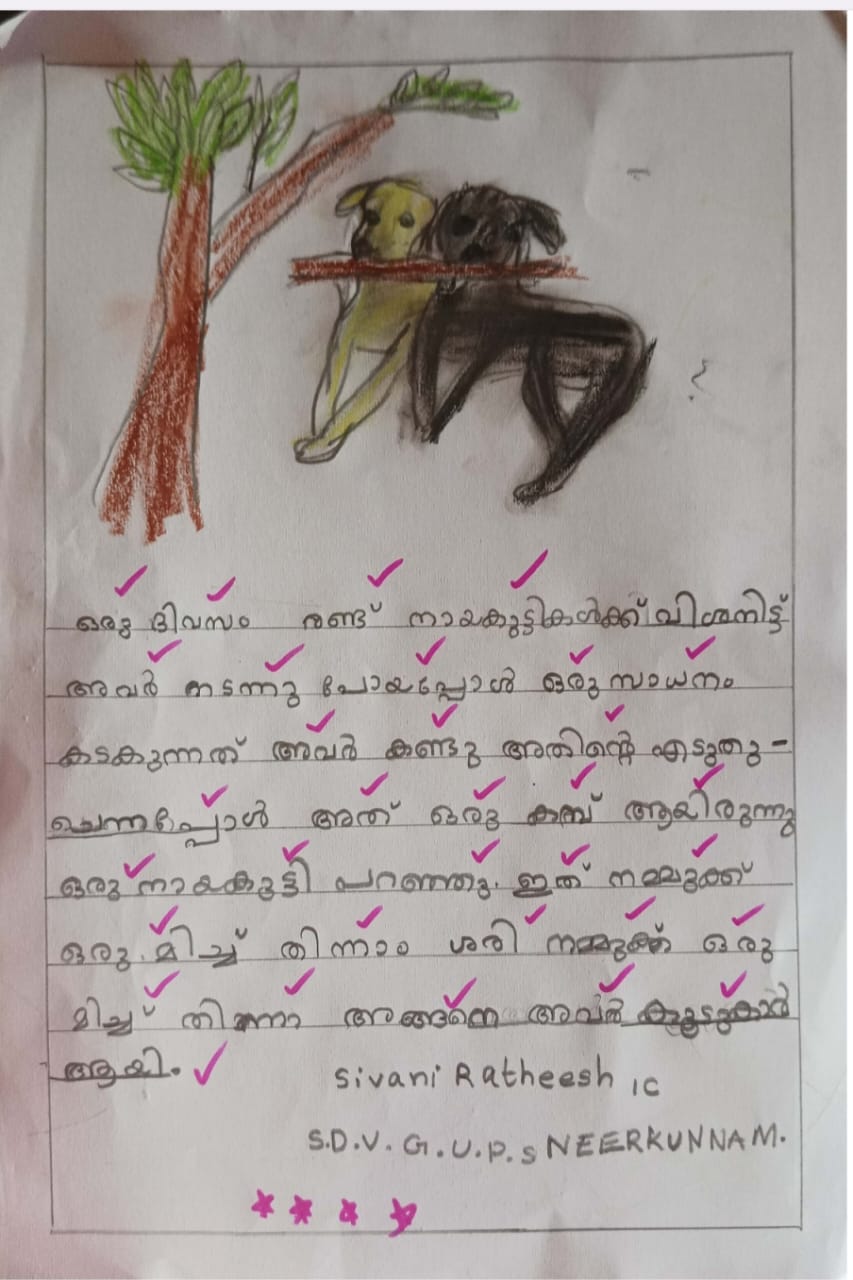 ഒരു ദിവസം രണ്ട് നായകുട്ടികൾക്ക് വിശനിട്ട്
അവർ നടന്നു പോയപ്പോൾ ഒരു സാധനം
കടകുന്നത് അവർ കണ്ടു അതിൻ്റെ എടുതു-
ചെന്നപ്പോൾ അത് ഒരു കമ്പ് ആയിരുന്നു
ഒരു നായകുട്ടി പറഞ്ഞു. ഇത് നമ്മുക്ക്
ഒരു മിച്ച് തിന്നാം ശരി നമ്മുക്ക് ഒരു
മിച്ച് തിന്നാ അങ്ങനെ അവർ കൂടുകാർ
ആയി.
Sivani Ratheesh 1C
S.D.V. G.U.P.S NEERKUNNAM.